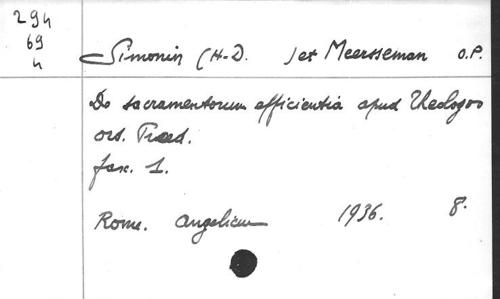 294
69
4
Simonin (H-D. ) et Meersseman O.P.
De sacramentorum efficientia apud Theologos
ord. Praed.
fasc. 1.
Rome. Angelicum 1936. 8.